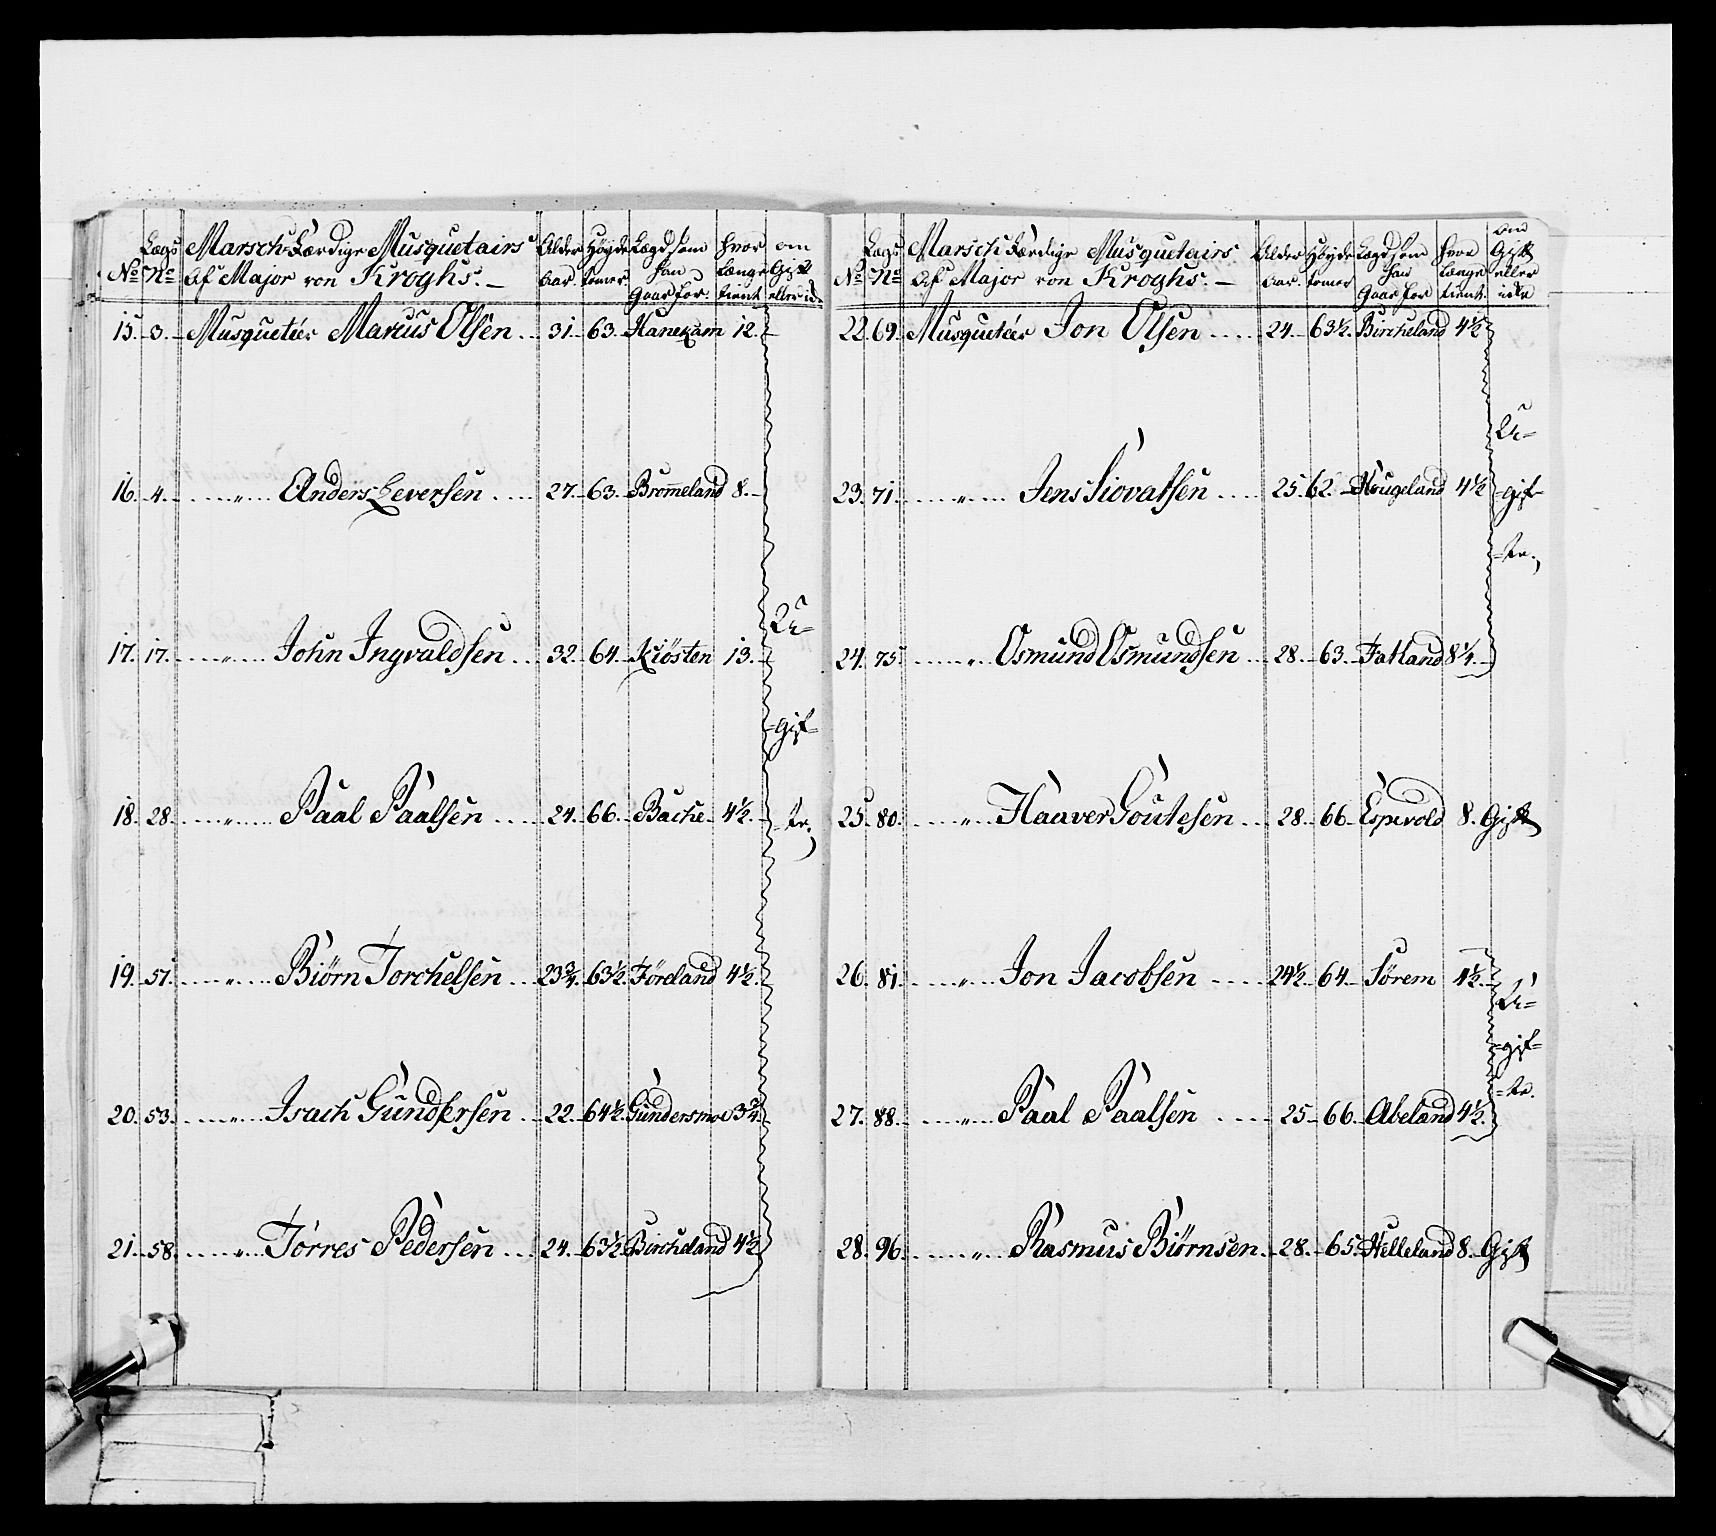 No Lægs No Marsch Færdige Musquetairs af Major von Kroghs. Alder Aar. Høyde tomer. Lægd som han Gaar for. hvor længe tient om Gift eller icke
15. 3. Musquetiér Marcus Olsen 31. 63. Hanekam 12.
16. 4. " Anders Leversen 27. 63. Brom̅eland 8.
17. 17. " John Ingvaldsen 32. 64. Kiösten 13.
18. 28. " Paal Paalsen 24. 66. Bache 4½.
19. 51. " Biörn Torchelsen 23¾. 63½. Föreland 4½.
20. 53. " Isach Gundersen 22. 64½. Gundersmoe 3¾.
21. 58. " Torres Pedersen 24. 63½. Bircheland 4½.
U=
=gif=
=te.
No Lægs No Marsch Færdige Musquetairs af Major von Kroghs. Alder Aar. Høyde tomer Lægd som han Gaar for hvor længe tient. om Gift eller icke
22. 69. Musquetiér Jon Olsen 24. 63½. Bircheland 4½
23. 71. " Jens Siovatsen 25. 62. Hougeland 4½
24. 75 " Osmund Osmundsen 28. 63. Fatland 8¼.
U=
=gif=
=te.
25. 80. " Haaver Goutesen 28. 66. Espevold 8. Gift
26. 81. " Jon Jacobsen 24½. 64. Sörem 4½.
27. 88. " Paal Paalsen 25. 66. Abeland 4½.
U=
=gif=
=te.
28. 96. " Rasmus Biörnsen 28. 65. Helleland 8. Gift